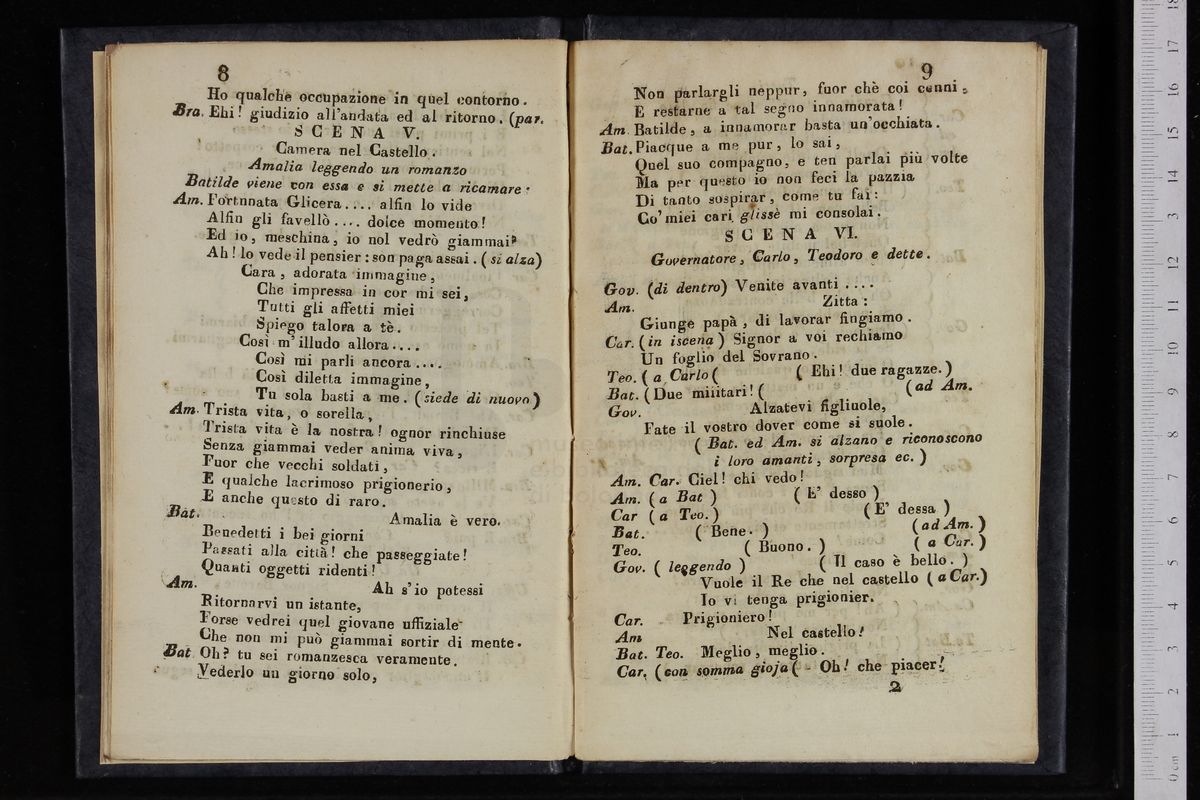 8
Ho qualche occupazione in quel contorno.
Bra. Ehi! giudizio all'andata ed al ritorno. (par.
SCENA V.
Camera nel Castello.
Amalia leggendo un romanzo
Batilde viene con essa e si mette a ricamare:
Am. Fortunata Glicera.... alfin lo vide
Alfin gli favellò.... dolce momento!
Ed io, meschina, io nol vedrò giammai?
Ah! lo vede il pensier: son paga assai. (si alza)
Cara, adorata immagine,
Che impressa in cor mi sei,
Tutti gli affetti miei
Spiego talora a tè.
Così m'illudo allora....
Così mi parli ancora....
Così diletta immagine,
Tu sola basti a me. (siede di nuovo)
Am. Trista vita, o sorella,
Trista vita è la nostra! ognor rinchiuse
Senza giammai veder anima viva,
Fuor che vecchi soldati,
E qualche lacrimoso prigionerio,
E anche questo di raro.
Bat. Amalia è vero.
Benedetti i bei giorni
Passati alla città! che passeggiate!
Quanti oggetti ridenti!
Am. Ah s'io potessi
Ritornarvi un istante,
Forse vedrei quel giovane uffiziale
Che non mi può giammai sortir di mente.
Bat Oh? tu sei romanzesca veramente.
Vederlo un giorno solo,
9
Non parlargli neppur, fuor chè coi cenni,
E restarne a tal segno innamorata!
Am. Batilde, a innamorar basta un'occhiata.
Bat. Piacque a me pur, lo sai,
Quel suo compagno, e ten parlai più volte
Ma per questo io non feci la pazzia
Di tanto sospirar, come tu fai:
Co'miei cari glissè mi consolai.
SCENA VI.
Governatore, Carlo, Teodoro e dette.
Gov. (di dentro) Venite avanti....
Am. Zitta:
Giunge papà, di lavorar fingiamo.
Car. (in iscena) Signor a voi rechiamo
Un foglio del Sovrano.
Teo. (a Carlo( ( Ehi! due ragazze.)
Bat. (Due miiitari! ( (ad Am.
Gov. Alzatevi figliuole,
Fate il vostro dover come si suole.
( Bat. ed Am. si alzano e riconoscono
i loro amanti, sorpresa ec. )
Am. Car. Ciel! chi vedo!
Am. (a Bat ) ( E' desso )
Car (a Teo.) (E' dessa )
Bat. ( Bene. ) (ad Am. )
Teo. ( Buono. ) ( a Car. )
Gov. ( leggendo ) ( Il caso è bello. )
Vuole il Re che nel castello (a Car.)
Io vi tenga prigionier.
Car. Prigioniero!
Am Nel castello!
Bat. Teo. Meglio, meglio.
Car. (con somma gioja( - Oh! che piacer!
2